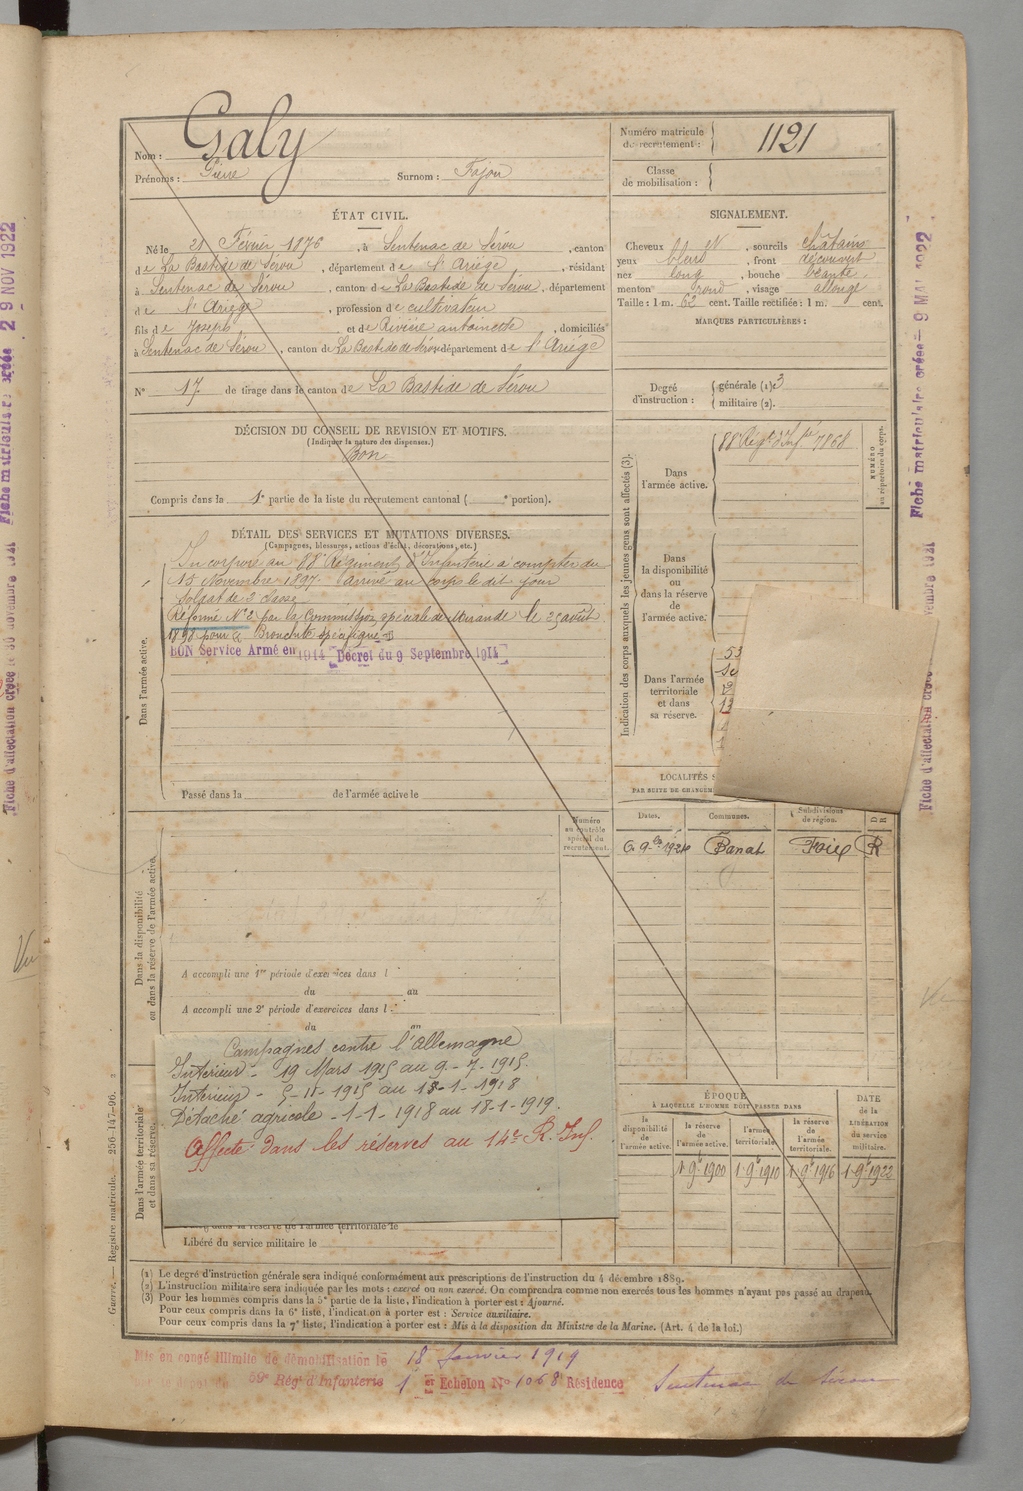 Nom : Galy
Prénoms : Pierre Surnom : Fajou
Numéro matricule du recrutement : 1121
Classe de mobilisation :
ÉTAT CIVIL.
Né le 21 Février 1876, à Sentenac de Sérou, canton
de La Bastide de Sérou, département de l'Ariège, résidant
à Sentenac de Sérou, canton de La Bastide de Sérou, département
de l'Ariège, profession de cultivateur
fils de Joseph et de Rivière antoinette, domiciliés
à Sentenac de Sérou, canton de La Bastide de Sérou département de l'Ariége
N° 17 de tirage dans le canton de La Bastide de Sérou
SIGNALEMENT.
Cheveux et, sourcils châtains
yeux bleus, front découvert
nez long, bouche béante
menton rond, visage allongé
Taille : 1 m. 62 cent. Taille rectifiée : 1 m. cent.
MARQUES PARTICULIÈRES :
Degré d'instruction : générale (1) 3
militaire (2).
DÉCISION DU CONSEIL DE REVISION ET MOTIFS.
(Indiquer la nature des dispenses.)
Bon
Compris dans la 1e partie de la liste du recrutement cantonal ( e portion).
DÉTAIL DES SERVICES ET MUTATIONS DIVERSES.
(Campagnes, blessures, actions d'éclat, décorations, etc.)
Dans l'armée active.
Incorporé au 88e Régiment d'Infanterie à compter du
15 Novembre 1897. Arrivé au corps le dit jour
soldat de 2e classe
Réformé N° 2 par la Commission spéciale de Mirande le 25 août
1898 pour Bronchite spécifique
BON Service Armé en 1914 Décret du 9 Septembre 1914
Passé dans la de l'armée active le
Indication des corps auxquels les jeunes gens sont affectés (3).
Dans l'armée active.
88e Régt d'Infie 7868
NUMÉRO au répertoire du corps.
Dans la disponibilité ou dans la réserve de l'armée active.
Dans l'armée territoriale et dans sa réserve.
53
13
LOCALITÉS
PAR SUITE DE
Dates. Communes. Subdivisions de région.
6 9bre 1921 Banat Foix R
Dans la disponibilité ou dans la réserve de l'armée active.
Numéro au contrôle spécial du recrutement.
A accompli une 1re période d'exercices dans l
du au
A accompli une 2e période d'exercices dans l
du au
Dans l'armée territoriale et dans sa réserve.
Campagnes contre l'allemagne
Intérieur - 19 Mars 1915 au 9-7-1915.
Intérieur - 5-11-1915 au 18-1-1918
Détaché agricole - 1-1-1918 au 18-1-1919.
Affecté dans les réserves au 14e R. Inf.
dans la réserve de l'armée territoriale le
Libéré du service militaire le
ÉPOQUE
À LAQUELLE L'HOMME DOIT PASSER DANS
la disponibilité de l'armée active. la réserve de l'armée active. l'armée territoriale. la réserve de l'armée territoriale.
DATE de la LIBÉRATION du service militaire.
1 9b 1900 1 9b 1910 1 9b 1916 1 9b 1922
(1) Le degré d'instruction générale sera indiqué conformément aux prescriptions de l'instruction du 4 décembre 1889.
(2) L'instruction militaire sera indiquée par les mots : exercé ou non exercé. On comprendra comme non exercés tous les hommes n'ayant pas passé au drapeau.
(3) Pour les hommes compris dans la 5e partie de la liste, l'indication à porter est : Ajourné.
Pour ceux compris dans la 6e liste, l'indication à porter est : Service auxiliaire.
Pour ceux compris dans la 7e liste, l'indication à porter est : Mis à la disposition du Ministre de la Marine. (Art. 4 de la loi.)
Mis en congé illimité de démobilisation le 18 Janvier 1919
59e Rég d'Infanterie 1er Echelon N° 1068 Résidence Sentenac de Sérou
Guerre. — Registre matricule. 256-147-96.
Fiche matriculaire créée 29 NOV 1922
Fiche d'affectation créée le
Fiche matriculaire créée — 9 MAI 1922
Fiche d'affectation créée
Vu
Vu